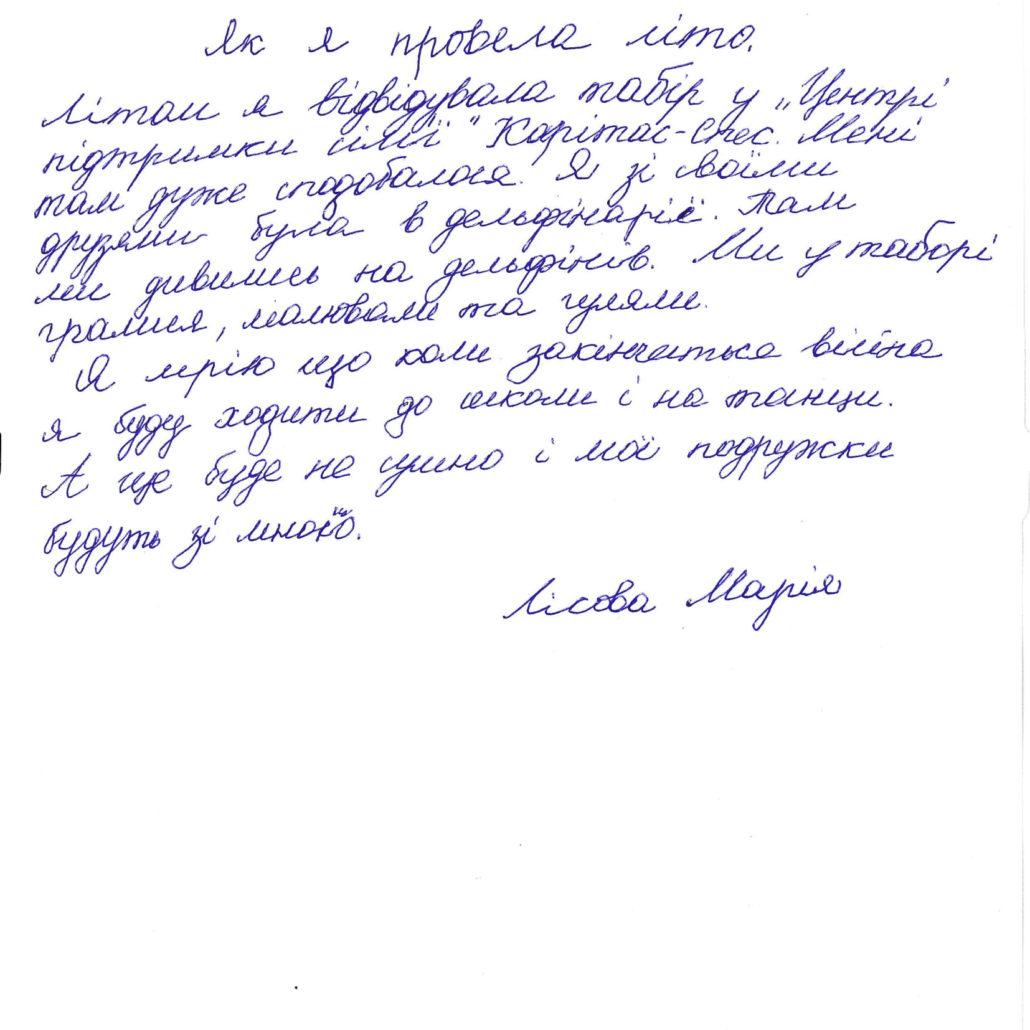 Як я провела літо.
Літом я відвідувала табір у „Центрі
підтримки сімї" Карітас-Спес. Мені
там дуже сподобалося. Я зі своїми
друзями була в дельфінарії. Там
ми дивились на дельфінів. Ми у таборі
гралися, малювали та гуляли.
Я мрію що коли закінчиться війна
я буду ходити до школи і на танци.
А ще буде не сумно і мої подружки
будуть зі мною.
Лісова Марія